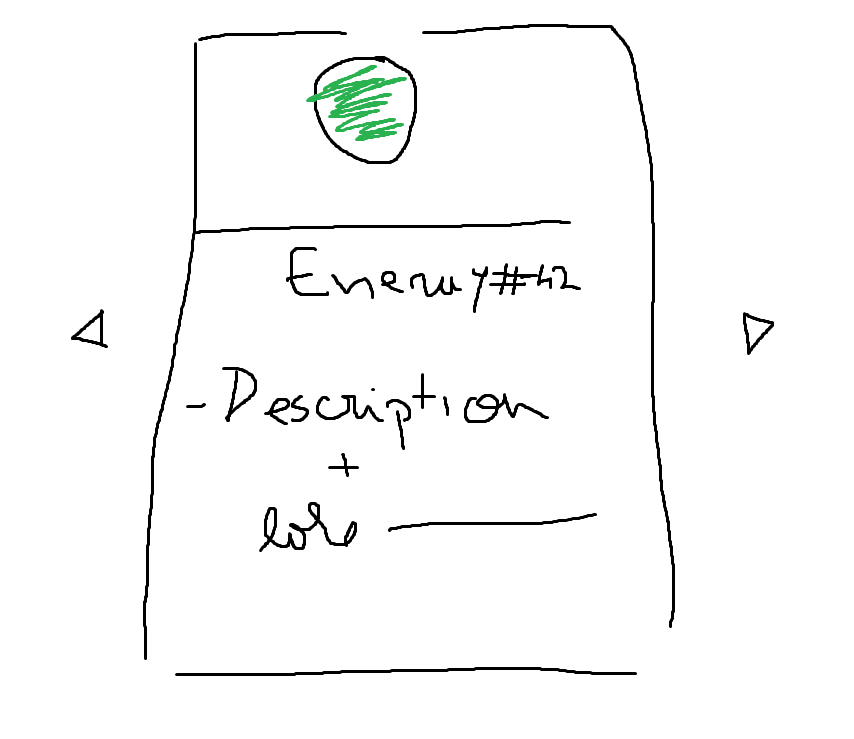 Enemy#42
- Description
+
lore